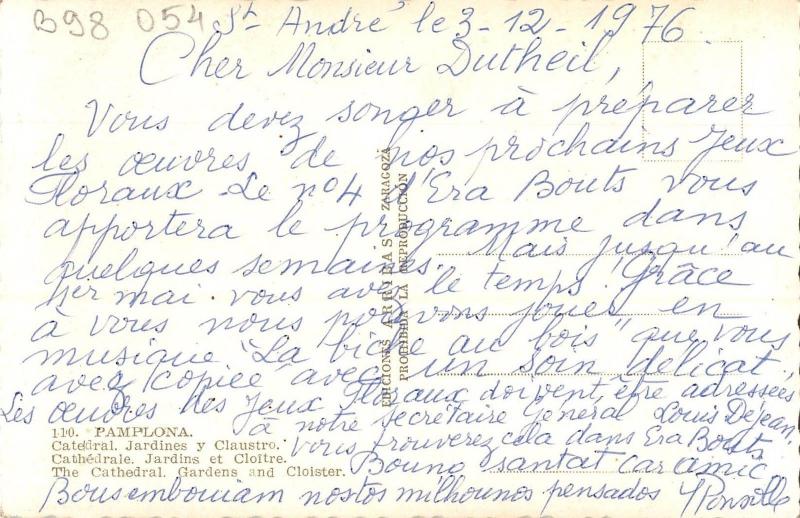 B98 054
St André le 3-12-1976.
Cher Monsieur Dutheil,
Vous devez songer à préparer
les œuvres de nos prochains Jeux
Floraux - Le nº4 d'Era Bouts vous
apportera le programme dans
quelques semaines. Mais jusqu'au
1er mai vous avez le temps. Grâce
à vous nous pouvons jouer en
musique "La biche au bois" que vous
avez copiée avec un soin délicat,
Les œuvres des Jeux Floraux doivent être adressées
à notre secrétaire Général Louis Dejean.
vous trouverez cela dans Era Bouts
Bouno santat car amic
Bous emboniam nostos milhounos pensados
EDICIONES ARRIBAS ZARAGOZA
PROHIBIDA LA REPRODUCCIÓN
110. PAMPLONA.
Catedral. Jardines y Claustro.
Cathédrale. Jardins et Cloître.
The Cathedral. Gardens and Cloister.